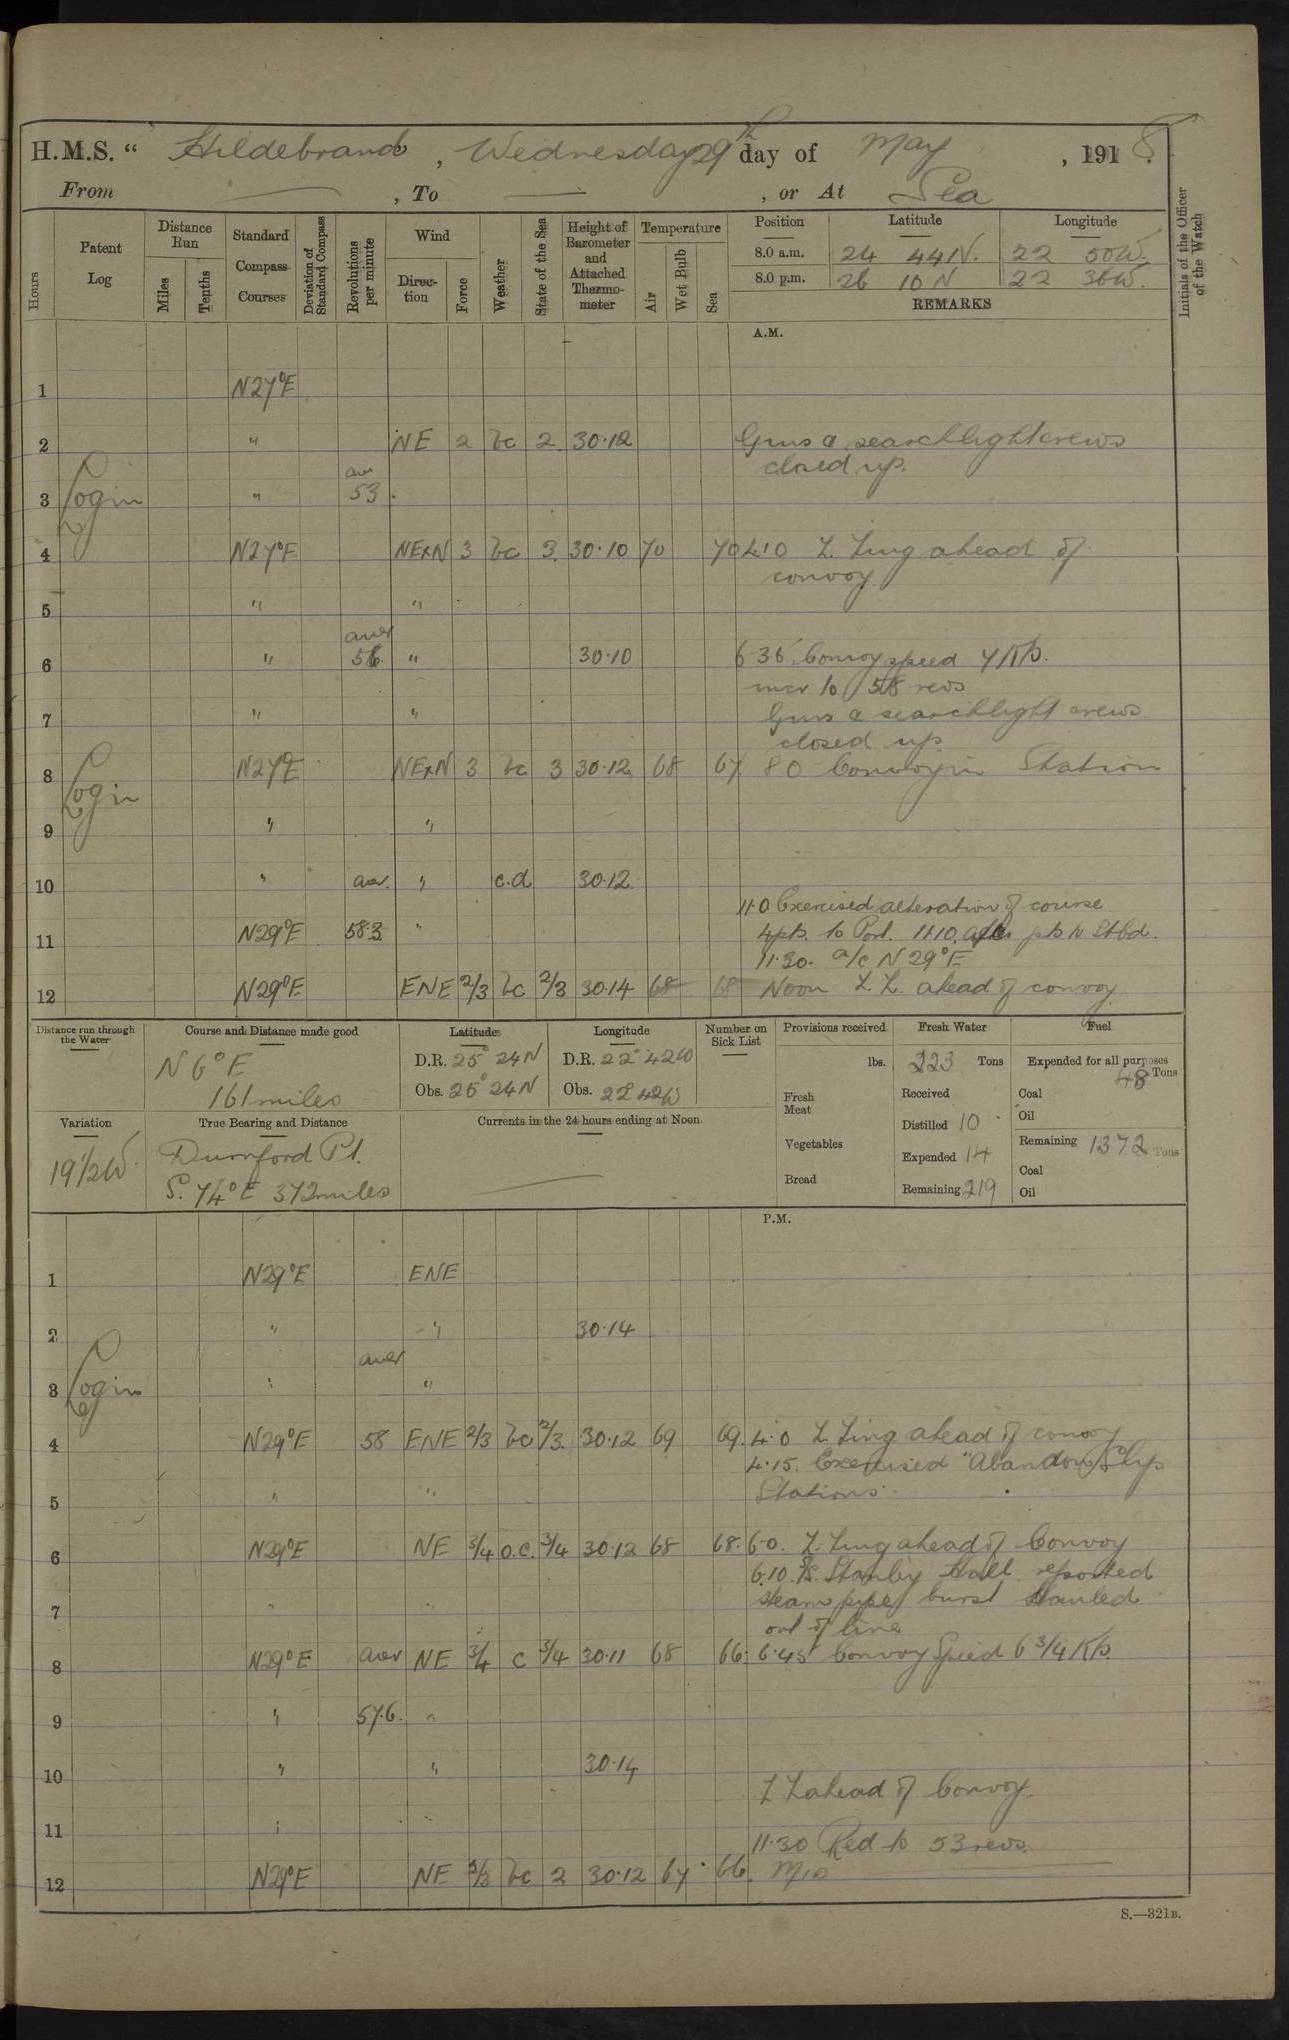 H.M.S. " Hildebrand , Wednesday 29th day of May , 1918.
From — , To — , or At Sea
Hours
Patent Log
Distance Run
Miles
Tenths
Standard Compass Courses
Deviation of Standard Compass
Revolutions per minute
Wind
Direction
Force
Weather
State of the Sea
Height of Barometer and Attached Thermometer
Temperature
Air
Wet Bulb
Sea
Position Latitude Longitude
8.0 a.m. 24 44 N. 22 50 W.
8.0 p.m. 26 10 N 22 36 W.
REMARKS
Initials of the Officer of the Watch
A.M.
1 N27°E
2 " NE 2 bc 2 30.12 Guns & searchlight crews
closed up.
av
3 Log in " 53
4 N27°E NExN 3 bc 3 30.10 70 70 4.10 Z. Zing ahead of
convoy
5 " "
aver
6 " 56 " 30.10 6.35 Convoy speed 7 Kts.
incr to 58 revs
7 " " Guns & searchlight crews
closed up
8 Log in N27°E NExN 3 bc 3 30.12 68 67 8.0 Convoy in Station
9 " "
10 " aver. " c.d 30.12
11.0 Exercised alteration of course
11 N29°E 58.3 " 4 pts. to Port. 11.10. pts to Stbd.
11.30. a/c N29°E
12 N29°E ENE 2/3 bc 2/3 30.14 68 68 Noon Z. Z. ahead of convoy
Distance run through the Water
Course and Distance made good
N 6° E
161 miles
Latitude
D.R. 25° 24 N
Obs. 25° 24 N
Longitude
D.R. 22° 42 W
Obs. 22 42 W
Number on Sick List
Provisions received
lbs.
Fresh Meat
Vegetables
Bread
Fresh Water
223 Tons
Received
Distilled 10
Expended 14
Remaining 219
Fuel
Expended for all purposes
48 Tons
Coal
Oil
Remaining 1372 Tons
Coal
Oil
Variation
19 1/2 W
True Bearing and Distance
Durnford Pt.
S. 74° E 372 miles
Currents in the 24 hours ending at Noon
P.M.
1 N29°E ENE
2 " " 30.14
aver
3 Log in " "
4 N29°E 58 ENE 2/3 bc 2/3 30.12 69 69. 4.0 Z. Zing ahead of convoy
4.15. Exercised "Abandon Ship
5 " " Stations.
6 N29°E NE 3/4 o.c. 3/4 30.12 68 68. 6.0. Z. Zing ahead of Convoy
6.10. Stanley Hall reported
7 " " steam pipe burst Hauled
out of line
8 N29°E aver NE 3/4 c 3/4 30.11 68 66. 6.45 Convoy Speed 6 3/4 Kts.
9 " 57.6. "
10 " " 30.14
Z Z ahead of Convoy.
11 " "
11.30 Red to 53 revs.
12 N29°E NE bc 2 30.12 67 66. Mid
S.—321B.